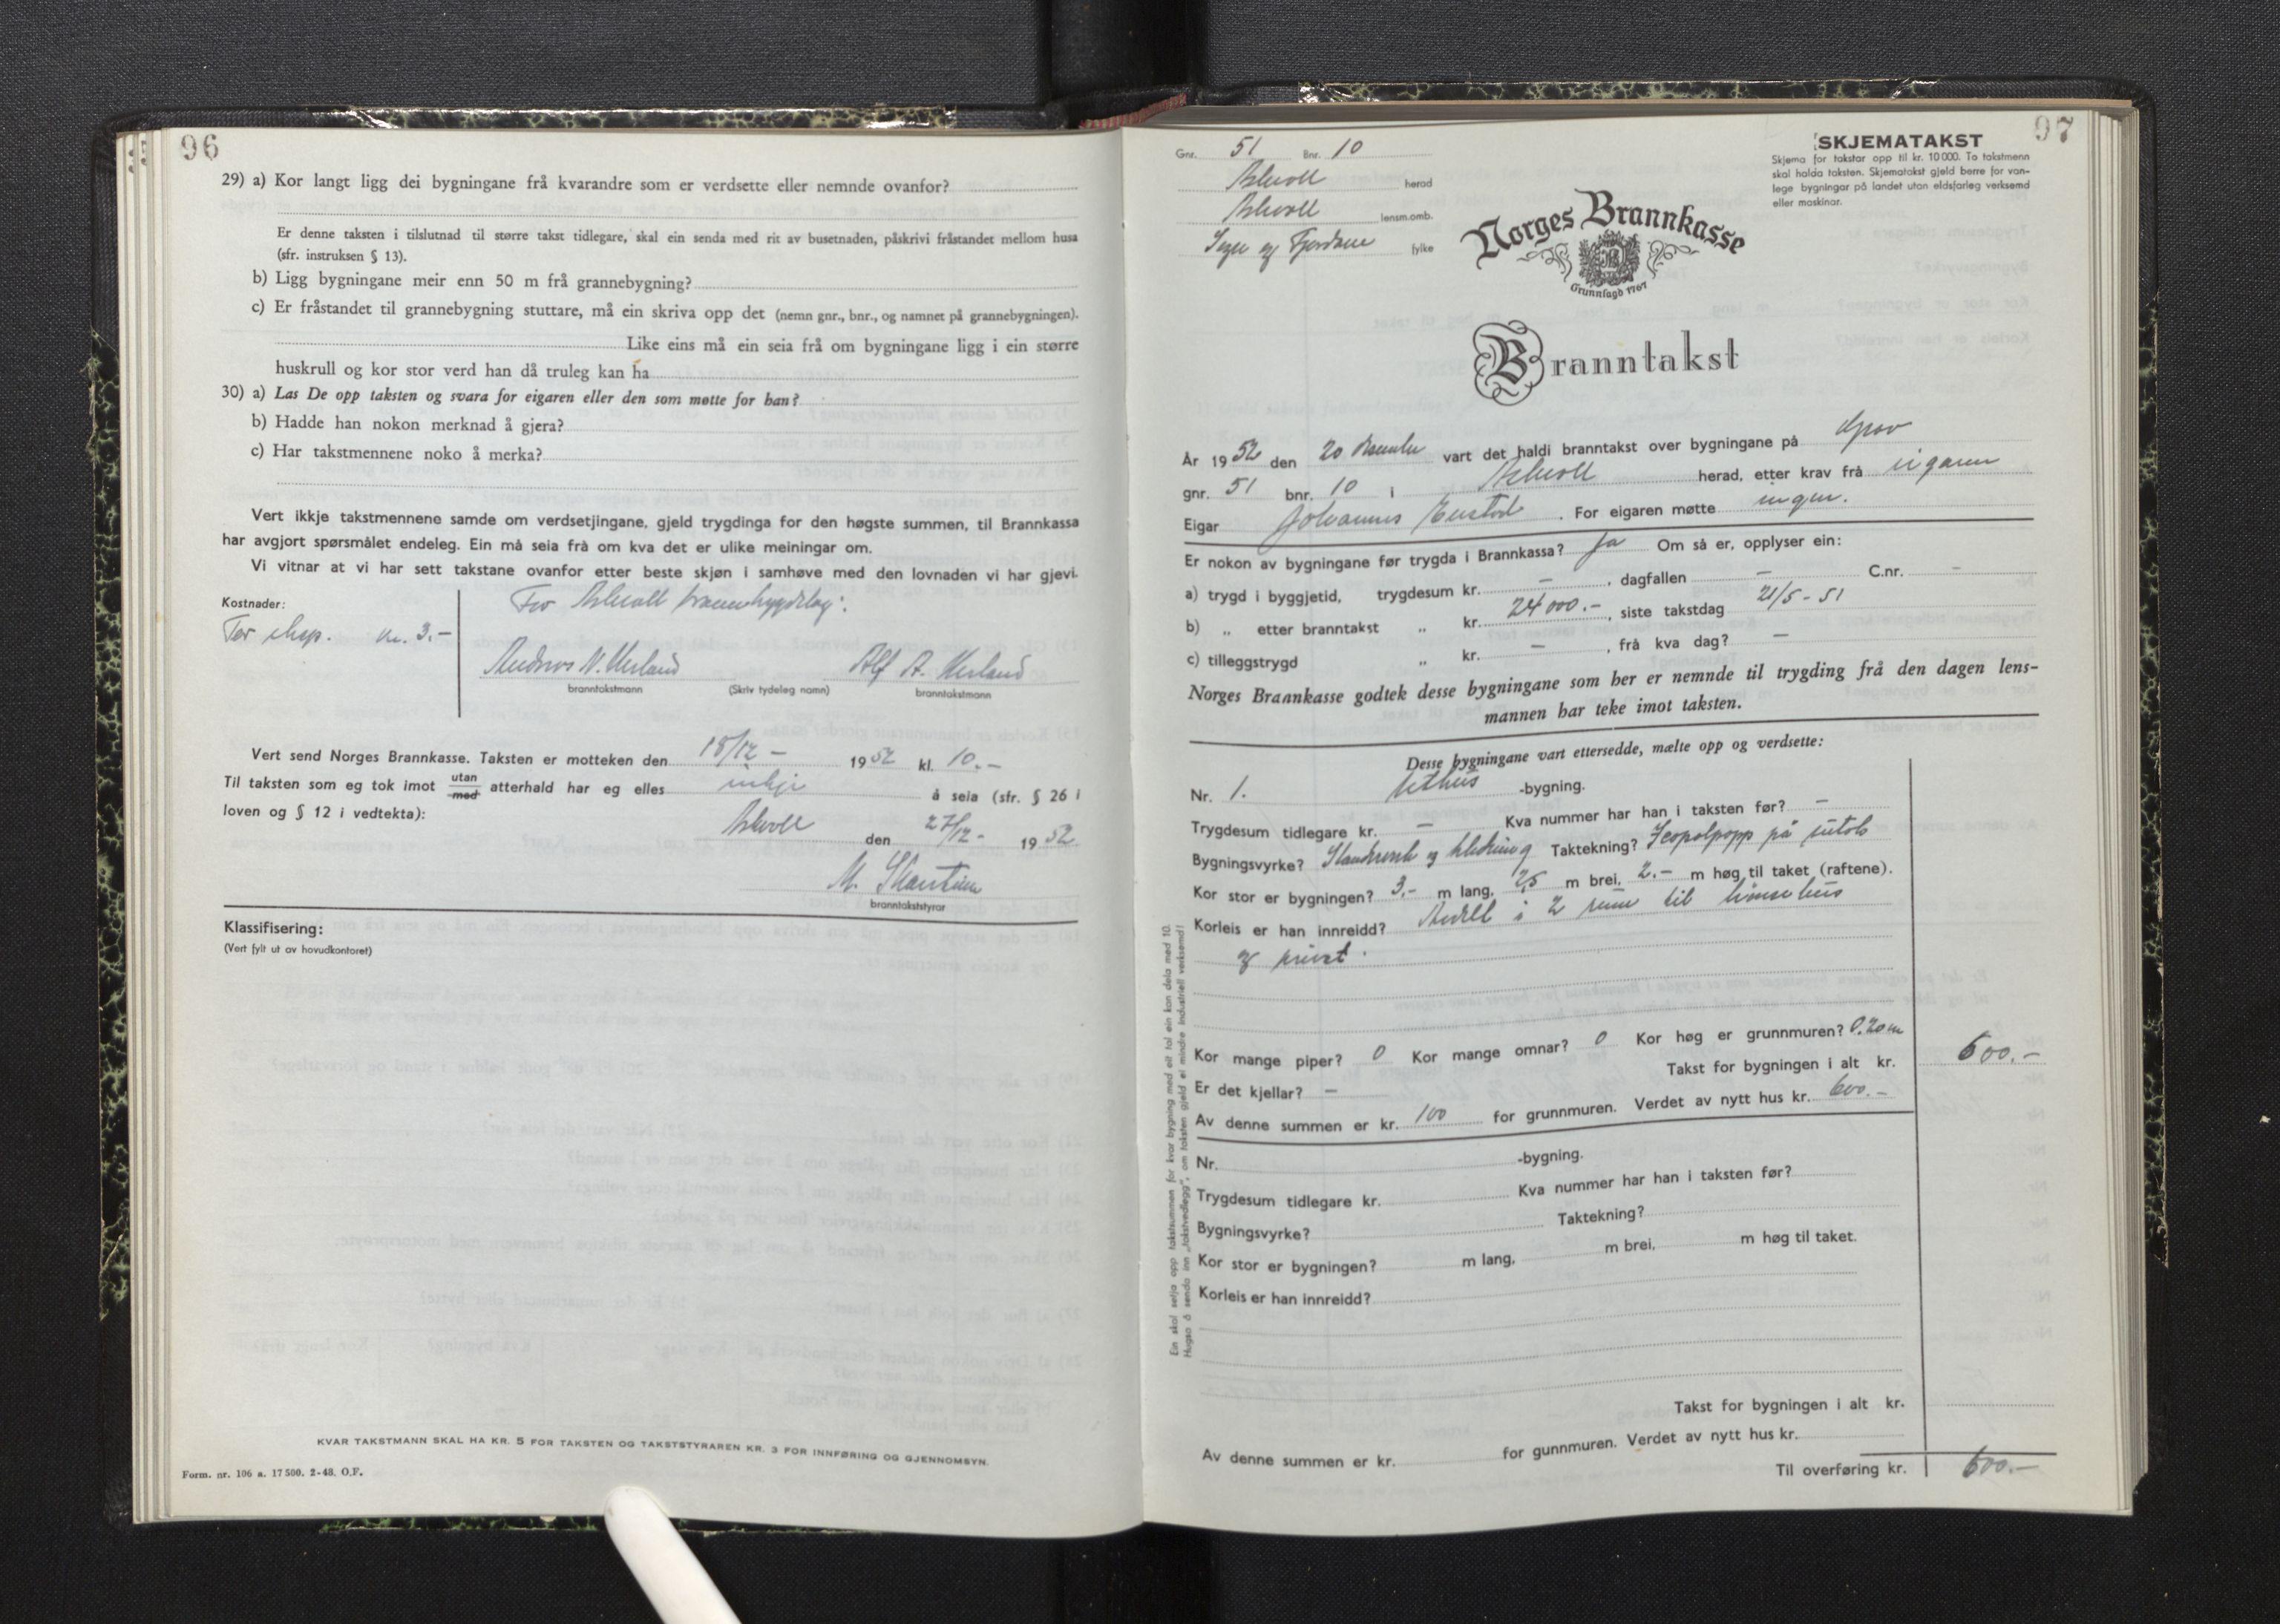 96
29) a) Kor langt ligg dei bygningane frå kvarandre som er verdsette eller nemnde ovanfor?
Er denne taksten i tilslutnad til større takst tidlegare, skal ein senda med rit av busetnaden, påskrivi fråstandet mellom husa
(sfr. instruksen § 13).
b) Ligg bygningane meir enn 50 m frå grannebygning?
c) Er fråstandet til grannebygning stuttare, må ein skriva opp det (nemn gnr., bnr., og namnet på grannebygningen).
Like eins må ein seia frå om bygningane ligg i ein større
huskrull og kor stor verd han då truleg kan ha
30) a) Las De opp taksten og svara for eigaren eller den som møtte for han?
b) Hadde han nokon merknad å gjera?
c) Har takstmennene noko å merka?
Vert ikkje takstmennene samde om verdsetjingane, gjeld trygdinga for den høgste summen, til Brannkassa
har avgjort spørsmålet endeleg. Ein må seia frå om kva det er ulike meiningar om.
Vi vitnar at vi har sett takstane ovanfor etter beste skjøn i samhøve med den lovnaden vi har gjevi.
Kostnader:
For Askvoll
For eksp. kr. 3.-
Andreas N. Herland Alf A. Herland
branntakstmann (Skriv tydeleg namn) branntakstmann
Vert send Norges Brannkasse. Taksten er motteken den 18/12 - 1952 kl. 10.-
Til taksten som eg tok imot utan/med atterhald har eg elles inkje å seia (sfr. § 26 i
loven og § 12 i vedtekta):
Askvoll den 27/12- 1952
M.
branntakststyrar
Klassifisering:
(Vert fylt ut av hovudkontoret)
KVAR TAKSTMANN SKAL HA KR. 5 FOR TAKSTEN OG TAKSTSTYRAREN KR. 3 FOR INNFØRING OG GJENNOMSYN.
Form. nr. 106 a. 17 500. 2-48. O.F.
97
Gnr. 51 Bnr. 10
Askvoll herad
Askvoll lensm.omb.
Sogn og Fjordane fylke
SKJEMATAKST
Skjema for takstar opp til kr. 10 000. To takstmenn
skal halda taksten. Skjematakst gjeld berre for van-
lege bygningar på landet utan eldsfarleg verksemd
eller maskinar.
Norges Brannkasse
Grunnlagd 1767
Branntakst
År 1952 den 20 desember vart det haldi branntakst over bygningane på Grov
gnr. 51 bnr. 10 i Askvoll herad, etter krav frå eigaren
Eigar Johannes . For eigaren møtte ingen.
Er nokon av bygningane før trygda i Brannkassa? Ja Om så er, opplyser ein:
a) trygd i byggjetid, trygdesum kr. - , dagfallen - C.nr. -
b) „ etter branntakst „ kr. 24 000.- , siste takstdag 21/5 - 51
c) tilleggstrygd „ kr. - , frå kva dag? -
Norges Brannkasse godtek desse bygningane som her er nemnde til trygding frå den dagen lens-
mannen har teke imot taksten.
Desse bygningane vart ettersedde, mælte opp og verdsette:
Nr. 1. Uthus -bygning.
Trygdesum tidlegare kr. - Kva nummer har han i taksten før? -
Bygningsvyrke? Standverk og kledning Taktekning? på sutak
Kor stor er bygningen? 3,- m lang, 2,5 m brei, 2.- m høg til taket (raftene).
Korleis er han innreidd? Avdelt i 2 rum til hønsehus
og privet.
Kor mange piper? 0 Kor mange omnar? 0 Kor høg er grunnmuren? 0.20 m
Er det kjellar? - Takst for bygningen i alt kr. 600.-
Av denne summen er kr. 100 for grunnmuren. Verdet av nytt hus kr. 600.-
Nr. -bygning.
Trygdesum tidlegare kr. Kva nummer har han i taksten før?
Bygningsvyrke? Taktekning?
Kor stor er bygningen? m lang, m brei, m høg til taket.
Korleis er han innreidd?
Takst for bygningen i alt kr.
Av denne summen er kr. for gunnmuren. Verdet av nytt hus kr.
Til overføring kr. 600.-
Ein skal setja opp takstsummen for kvar bygning med eit tal ein kan dela med 10.
Hugso å senda inn „takstvedlegg", om taksten gjeld ei mindre industriell verksemd!